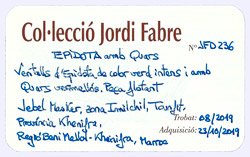 Col·lecció Jordi Fabre
Nº JFD236
EPIDOTA amb Quars
Ventalls d'Epidota de color verd intens i amb
Quars vermellós. Peça flotant
Jebel Masker, zona Imilchil, Tounfit,
Província Khenifra,
Regió Beni Mellal-Khenifra, Marroc
Trobat: 08/2019
Adquisició: 23/10/2019